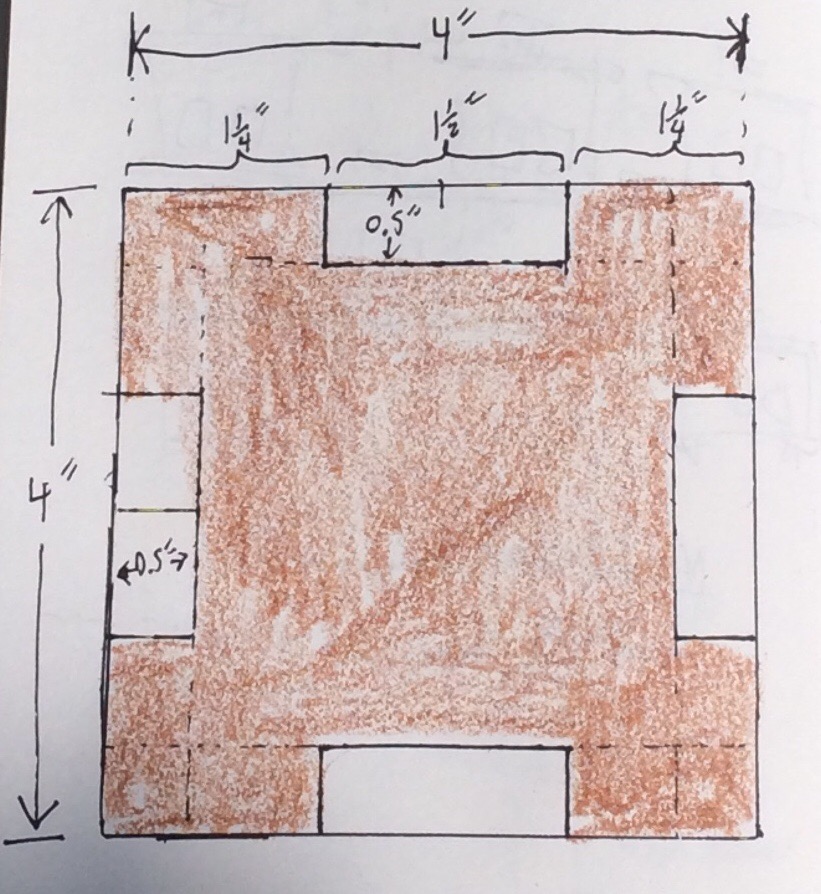 4"
1¼" 1½" 1¼"
0.5"
4"
0.5"